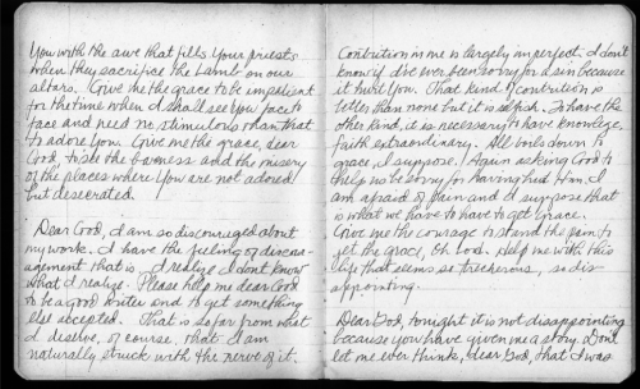 You with the awe that fills Your priests
when they sacrifice the Lamb on our
altars. Give me the grace to be impatient
for the time when I shall see You face to
face and need no stimulous than that
to adore You. Give me the grace, dear
God, to see the bareness and the misery
of the places where You are not adored
but desecrated.
Dear God, I am so discouraged about
my work. I have the feeling of discour-
agement that is. I realize I dont know
what I realize. Please help me dear God
to be a good writer and to get something
else accepted. That is so far from what
I deserve, of course, that I am
naturally struck with the nerve of it.
Contrition in me is largely imperfect. I don't
know if I've ever been sorry for a sin because
it hurt You. That kind of contrition is
better than none but it is selfish. To have the
other kind, it is necessary to have knowlege,
faith extraordinary. All boils down to
grace, I suppose. Again asking God to
help us be sorry for having hurt Him. I
am afraid of pain and I suppose that
is what we have to have to get grace.
Give me the courage to stand the pain to
get the grace, Oh Lord. Help me with this
life that seems so trecherous, so dis
appointing.
Dear God, tonight it is not disappointing
because you have given me a story. Dont
let me ever think, dear God, that I was